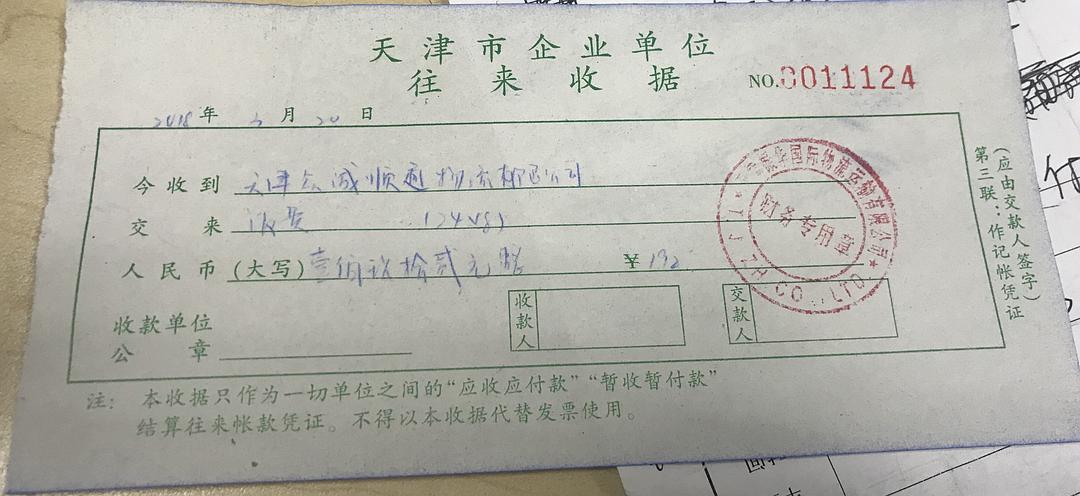 天津市企业单位
往来收据
NO.0011124
2018年3月20日
今收到 天津众诚顺通物流有限公司
交来
人民币(大写) 壹佰 拾贰元整 ¥192
收款单位
公章
收款人
交款人
振华国际物流运输有限公司
财务专用章
CO.,LTD.
第三联:作记帐凭证
(应由交款人签字)
注: 本收据只作为一切单位之间的“应收应付款”“暂收暂付款”
结算往来帐款凭证。不得以本收据代替发票使用。